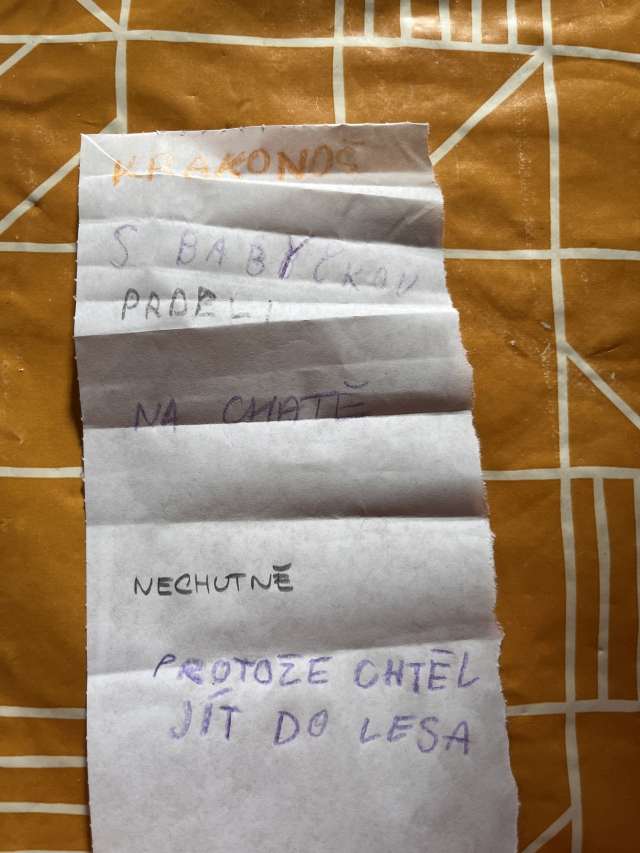 KRAKONOŠ
S BABYČKOU
PRDELI
NA CHATĚ
NECHUTNĚ
PROTOŽE CHTĚL
JÍT DO LESA